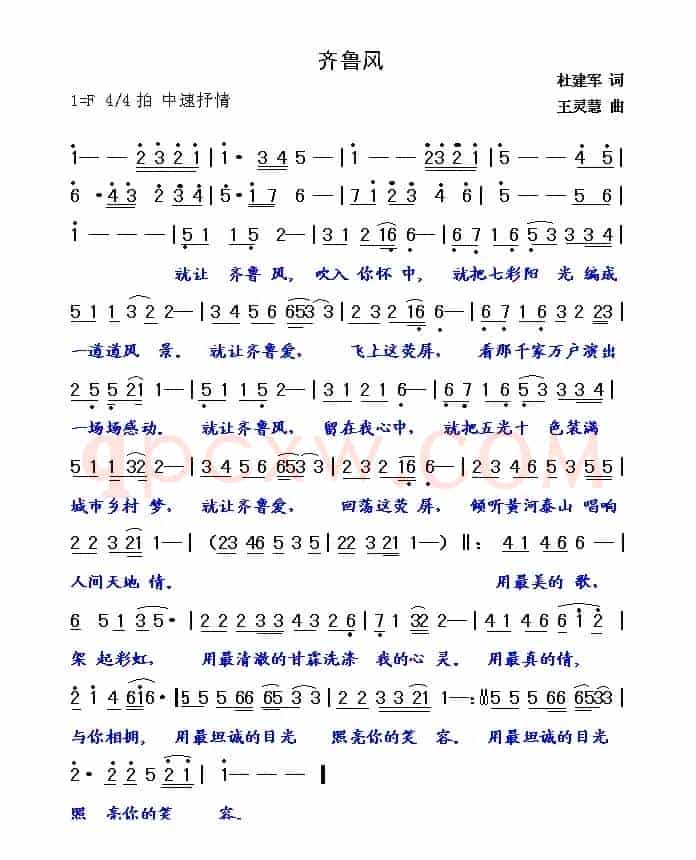 齐鲁风
杜建军 词
1=F 4/4拍 中速抒情
王灵慧 曲
1 — — 2 3 2 1 | 1· 3 4 5 — | 1 — — 23 2 1 | 5 — — 4 5 |
6 · 4 3 2 3 4 | 5· 1 7 6 — | 7 1 2 3 4 6 | 5 — — 5 6 |
1 — — — | 5 1 1 5 2 — | 3 1 2 16 6 — | 6 7 1 5 3 3 3 4 |
就让 齐鲁 风, 吹入 你怀 中, 就把七彩阳 光 编成
5 1 1 3 2 2 — | 3 4 5 6 653 3 | 2 3 2 16 6 — | 6 7 1 6 3 2 23 |
一道道风 景。 就让齐鲁爱, 飞上这荧屏, 看那千家万户演出
2 5 5 21 1 — | 5 1 1 5 2 — | 3 1 2 1 6 — | 6 7 1 5 3 3 3 4 |
一场场感动。 就让齐鲁风, 留在我心中, 就把五光十 色装满
5 1 1 32 2 — | 3 4 5 6 653 3 | 2 3 2 16 6 — | 6 1 6 5 3 5 5 |
城市乡村 梦, 就让齐鲁爱, 回荡这荧 屏, 倾听黄河泰山 唱响
2 2 3 21 1 — | (23 46 5 3 5 | 5 3 2 3 21 1 — ) ‖: 4 1 4 6 6 — |
人间天地 情。 用最美的 歌,
6 5 1 3 5 · | 2 2 2 3 3 4 3 2 3 | 7 1 2 2 — | 4 1 4 6 6 1 2 |
架 起彩虹, 用最清澈的甘霖洗涤 我的心 灵。 用最真的情,
2 1 4 616 · 5 5 5 66 65 3 3 | 2 2 3 3 21 1 — :‖ 5 5 5 66 6533 |
与你相拥, 用最坦诚的目光 照亮你的笑 容。 用最坦诚的目光
2 · 2 2 5 2 1 | 1 — — —
照 亮你的笑 容。
qpcxw.com